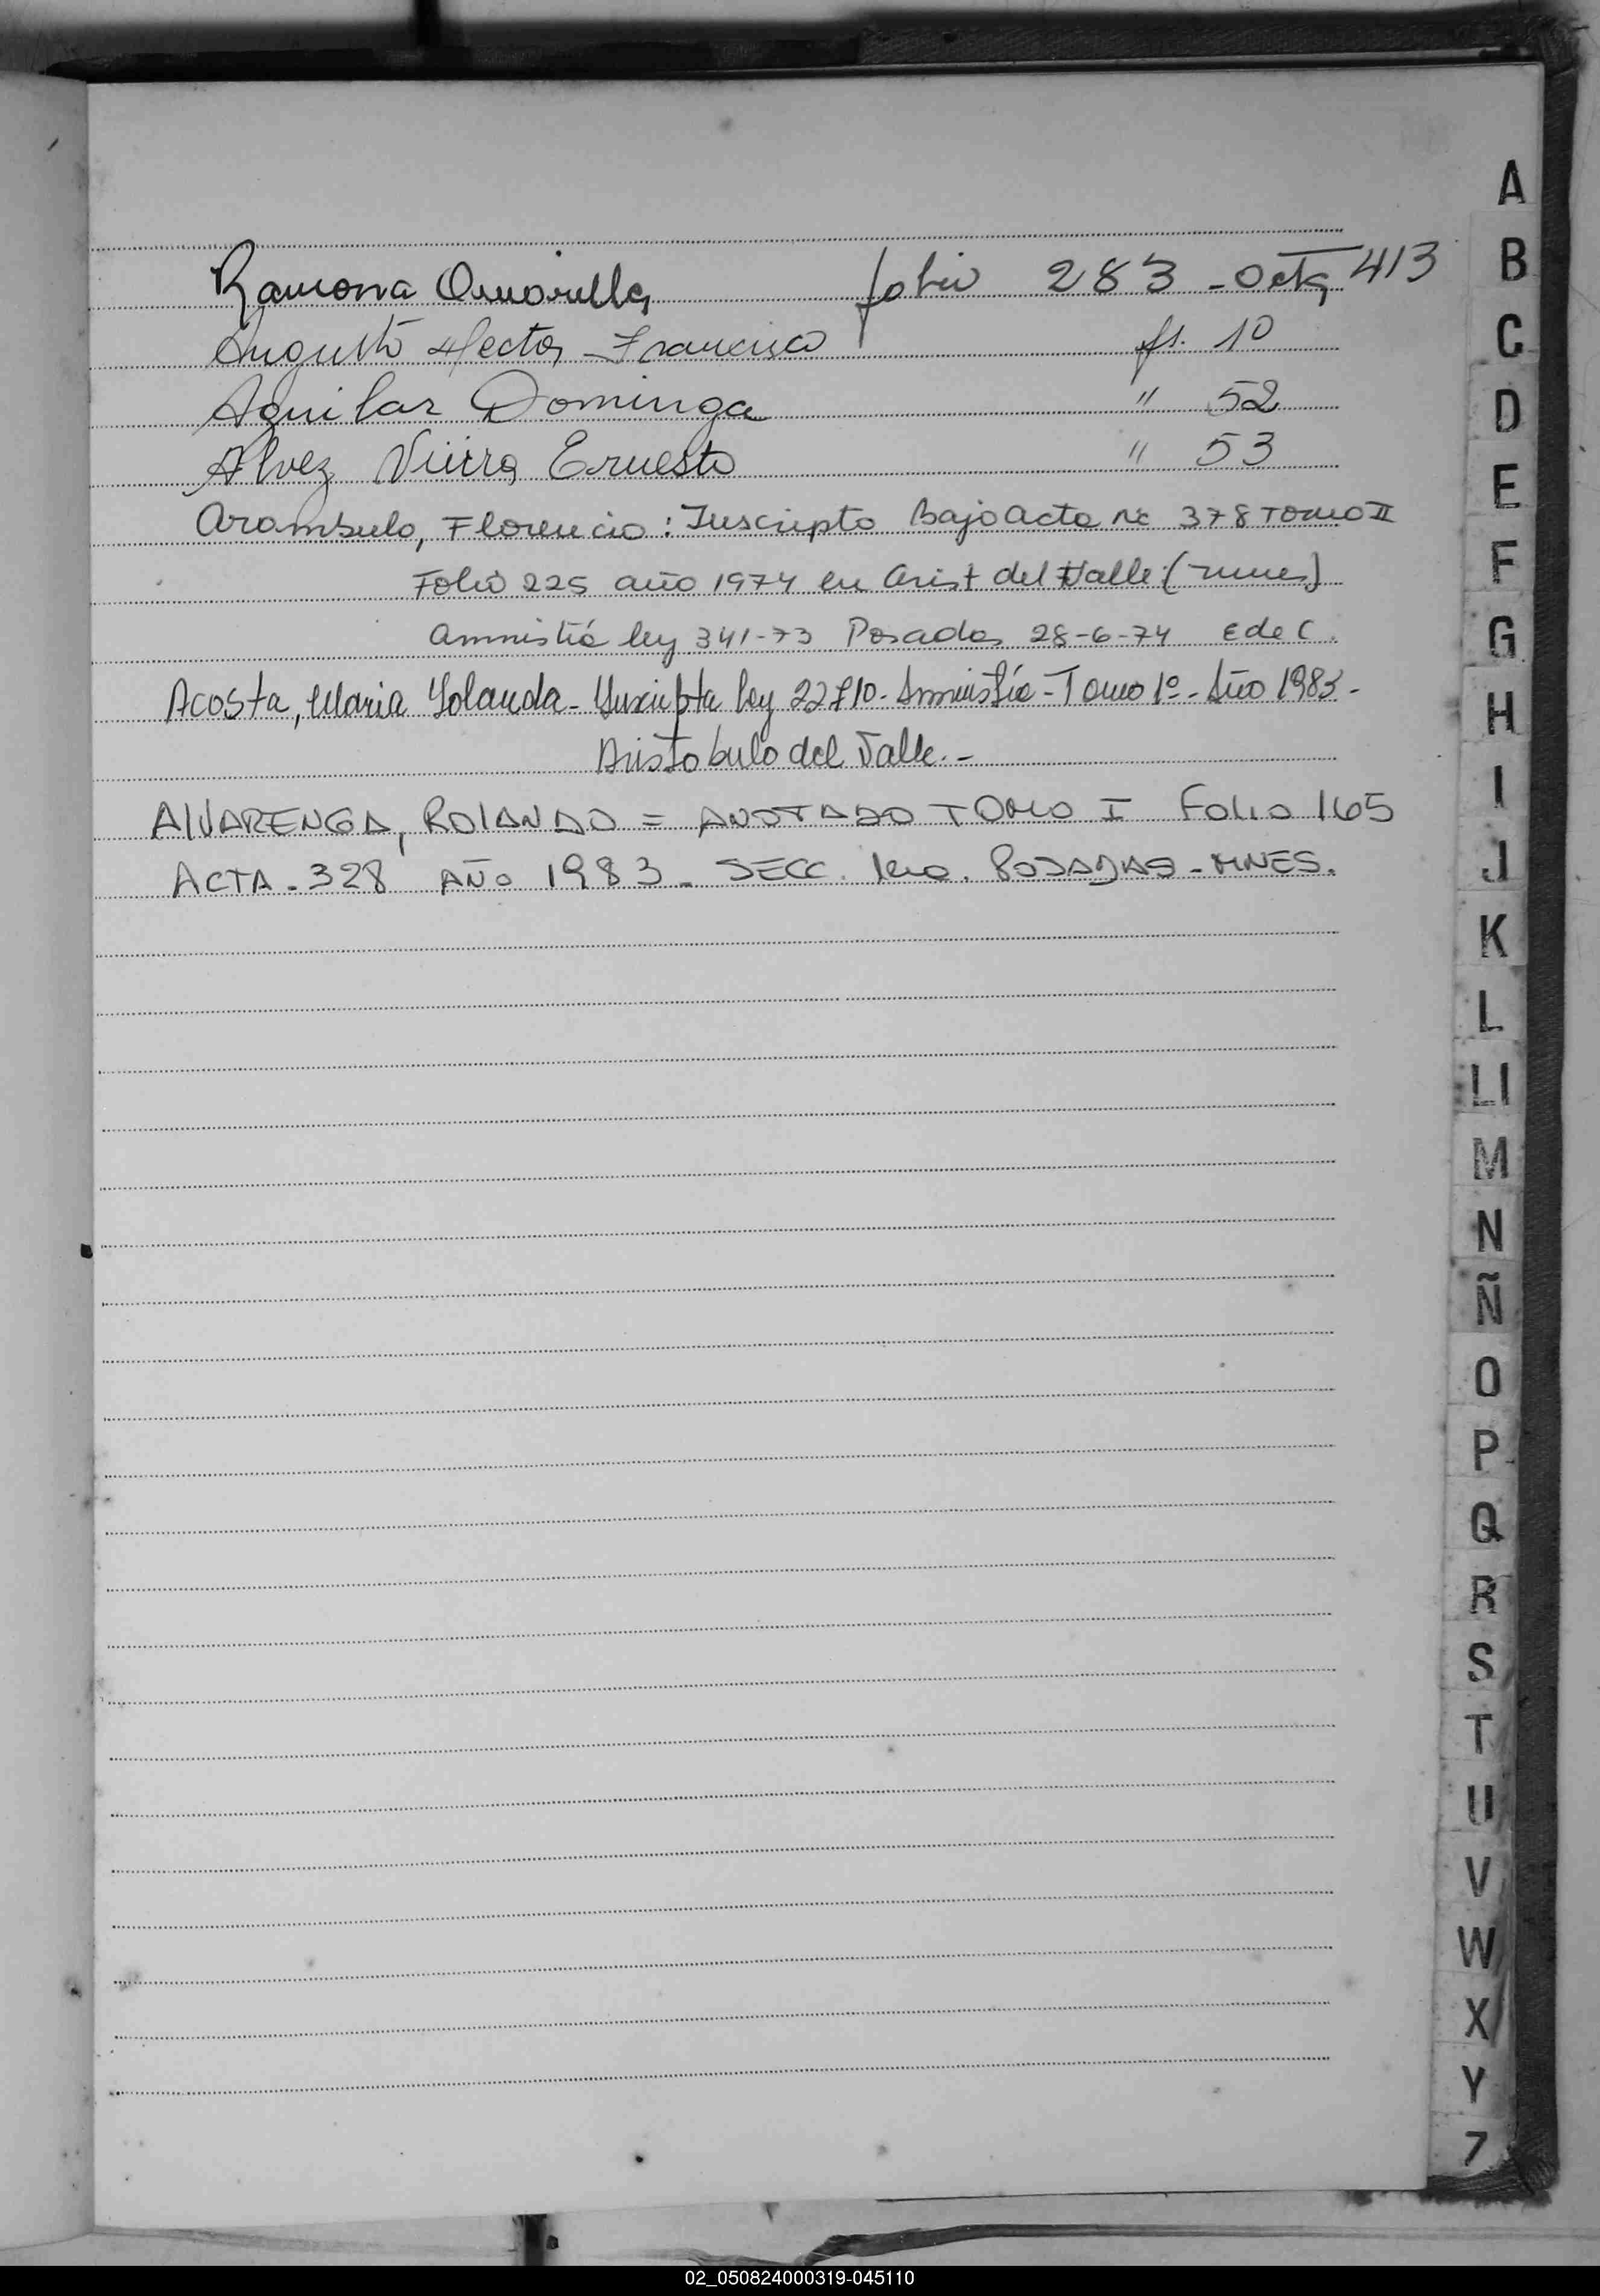 Ramona Amarilla folio 283 - acta 413
Augusto Hector Francisco fs. 10
Aguilar Dominga " 52
Alvez Vieira Ernesto " 53
Arambulo, Florencio: Inscripto Bajo acta nº 378 Tomo II
Folio 225 año 1974 en Arist del Valle (mnes)
Amnistia ley 341-73 Posadas 28-6-74 E de C.
Acosta, Maria Yolanda - Inscripta ley 22710 - Amnistía - Tomo 1º - Año 1983 -
Aristobulo del Valle.-
ALVARENGA, ROLANDO = ANOTADO TOMO I Folio 165
ACTA - 328 AÑO 1983 - SECC. 1era. POSADAS - MNES.
A
B
C
D
E
F
G
H
I
J
K
L
Ll
M
N
Ñ
O
P
Q
R
S
T
U
V
W
X
Y
Z
02_050824000319-045110